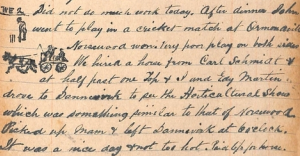 WE 2 Did not do much work today. After dinner John
went to play in a cricket match at Ormondville
Norsewood won. Very poor play on both sides
We hired a horse from Carl Schmidt &
at half past one I and Edy Martin
drove to Dannevirk to see the Horticultural Show
which was something similar to that of Norsewood
Picked up Mam & left Dannevirk at 6 o'clock.
It was a nice day & not too hot. Fair up home.